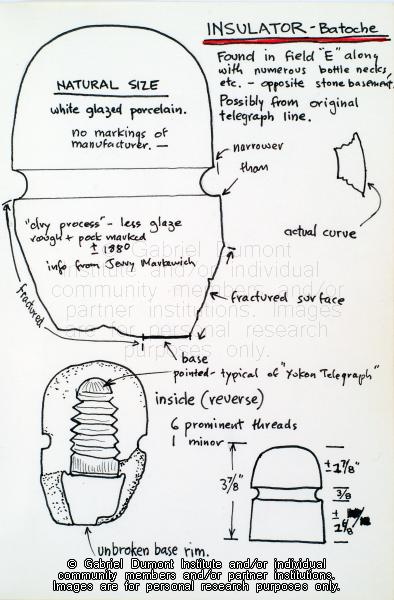 INSULATOR - Batoche
Found in field "E" along
with numerous bottle necks,
etc. - opposite stone basement.
Possibly from original
telegraph line.
NATURAL SIZE
white glazed porcelain.
no markings of
manufacturer. —
narrower
than
actual curve
"dry process" - less glaze
rough + pock marked
± 1880
info from Jerry Markewich
fractured
fractured surface
base
pointed - typical of "Yukon Telegraph"
inside (reverse)
6 prominent threads
1 minor
3 7/8"
± 1 7/8"
3/8
±
unbroken base rim.
Gabriel Dumont
Institute and/or individual
community members and/or
partner institutions. Images
are for personal research
purposes only.
© Gabriel Dumont Institute and/or individual
community members and/or partner institutions.
Images are for personal research purposes only.